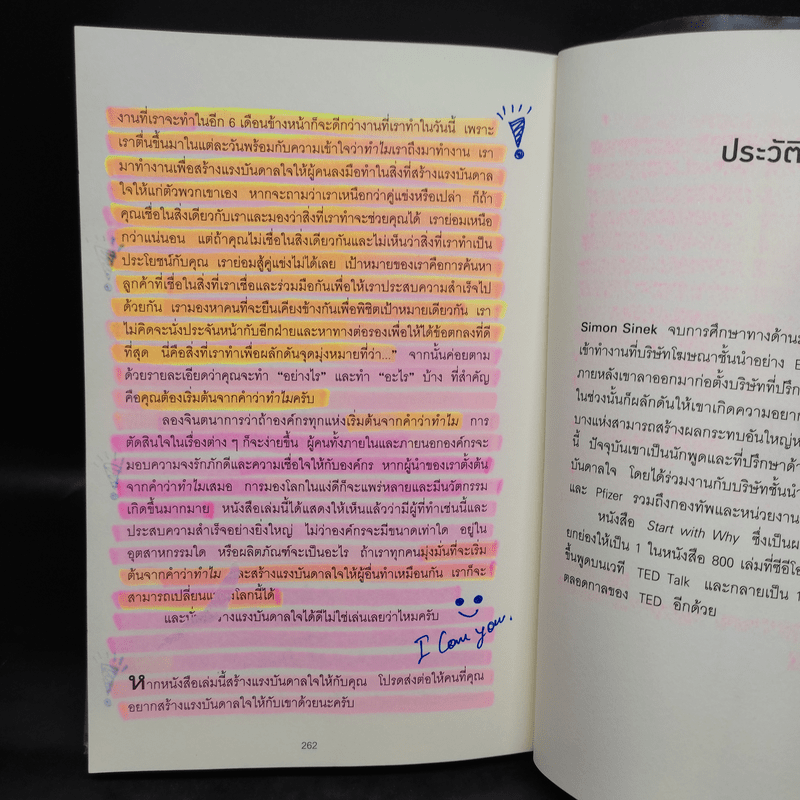 งานที่เราจะทำในอีก 6 เดือนข้างหน้าก็จะดีกว่างานที่เราทำในวันนี้ เพราะ
เราตื่นขึ้นมาในแต่ละวันพร้อมกับความเข้าใจว่าทำไมเราถึงมาทำงาน เรา
มาทำงานเพื่อสร้างแรงบันดาลใจให้ผู้คนลงมือทำในสิ่งที่สร้างแรงบันดาล
ใจให้แก่ตัวพวกเขาเอง หากจะถามว่าเราเหนือกว่าคู่แข่งหรือเปล่า ก็ถ้า
คุณเชื่อในสิ่งเดียวกับเราและมองว่าสิ่งที่เราทำจะช่วยคุณได้ เราย่อมเหนือ
กว่าแน่นอน แต่ถ้าคุณไม่เชื่อในสิ่งเดียวกันและไม่เห็นว่าสิ่งที่เราทำเป็น
ประโยชน์กับคุณ เราย่อมสู้คู่แข่งไม่ได้เลย เป้าหมายของเราคือการค้นหา
ลูกค้าที่เชื่อในสิ่งที่เราเชื่อและร่วมมือกันเพื่อให้เราประสบความสำเร็จไป
ด้วยกัน เรามองหาคนที่จะยืนเคียงข้างกันเพื่อพิชิตเป้าหมายเดียวกัน เรา
ไม่คิดจะนั่งประจันหน้ากับอีกฝ่ายและหาทางต่อรองเพื่อให้ได้ข้อตกลงที่ดี
ที่สุด นี่คือสิ่งที่เราทำเพื่อผลักดันจุดมุ่งหมายที่ว่า..." จากนั้นค่อยตาม
ด้วยรายละเอียดว่าคุณจะทำ "อย่างไร" และทำ "อะไร" บ้าง ที่สำคัญ
คือคุณต้องเริ่มต้นจากคำว่าทำไมครับ
ลองจินตนาการว่าถ้าองค์กรทุกแห่งเริ่มต้นจากคำว่าทำไม การ
ตัดสินใจในเรื่องต่าง ๆ ก็จะง่ายขึ้น ผู้คนทั้งภายในและภายนอกองค์กรจะ
มอบความจงรักภักดีและความเชื่อใจให้กับองค์กร หากผู้นำของเราตั้งต้น
จากคำว่าทำไมเสมอ การมองโลกในแง่ดีก็จะแพร่หลายและมีนวัตกรรม
เกิดขึ้นมากมาย หนังสือเล่มนี้ได้แสดงให้เห็นแล้วว่ามีผู้ที่ทำเช่นนี้และ
ประสบความสำเร็จอย่างยิ่งใหญ่ ไม่ว่าองค์กรจะมีขนาดเท่าใด อยู่ใน
อุตสาหกรรมใด หรือผลิตภัณฑ์จะเป็นอะไร ถ้าเราทุกคนมุ่งมั่นที่จะเริ่ม
ต้นจากคำว่าทำไม และสร้างแรงบันดาลใจให้ผู้อื่นทำเหมือนกัน เราก็จะ
สามารถเปลี่ยนแปลงโลกนี้ได้
างแรงบันดาลใจได้ดีไม่ใช่เล่นเลยว่าไหมครับ
I Can you.
หากหนังสือเล่มนี้สร้างแรงบันดาลใจให้กับคุณ โปรดส่งต่อให้คนที่คุณ
อยากสร้างแรงบันดาลใจให้กับเขาด้วยนะครับ
262
ประวัติ
Simon Sinek จบการศึกษาทางด้าน
เข้าทำงานที่บริษัทโฆษณาชั้นนำอย่าง E
ภายหลังเขาลาออกมาก่อตั้งบริษัทที่ปรึก
ในช่วงนั้นก็ผลักดันให้เขาเกิดความอยาก
บางแห่งสามารถสร้างผลกระทบอันใหญ่ห
นี้ ปัจจุบันเขาเป็นนักพูดและที่ปรึกษาด้า
บันดาลใจ โดยได้ร่วมงานกับบริษัทชั้นนำ
และ Pfizer รวมถึงกองทัพและหน่วยงาน
หนังสือ Start with Why ซึ่งเป็นผ
ยกย่องให้เป็น 1 ในหนังสือ 800 เล่มที่ซีอีโอ
ขึ้นพูดบนเวที TED Talk และกลายเป็น 1
ตลอดกาลของ TED อีกด้วย